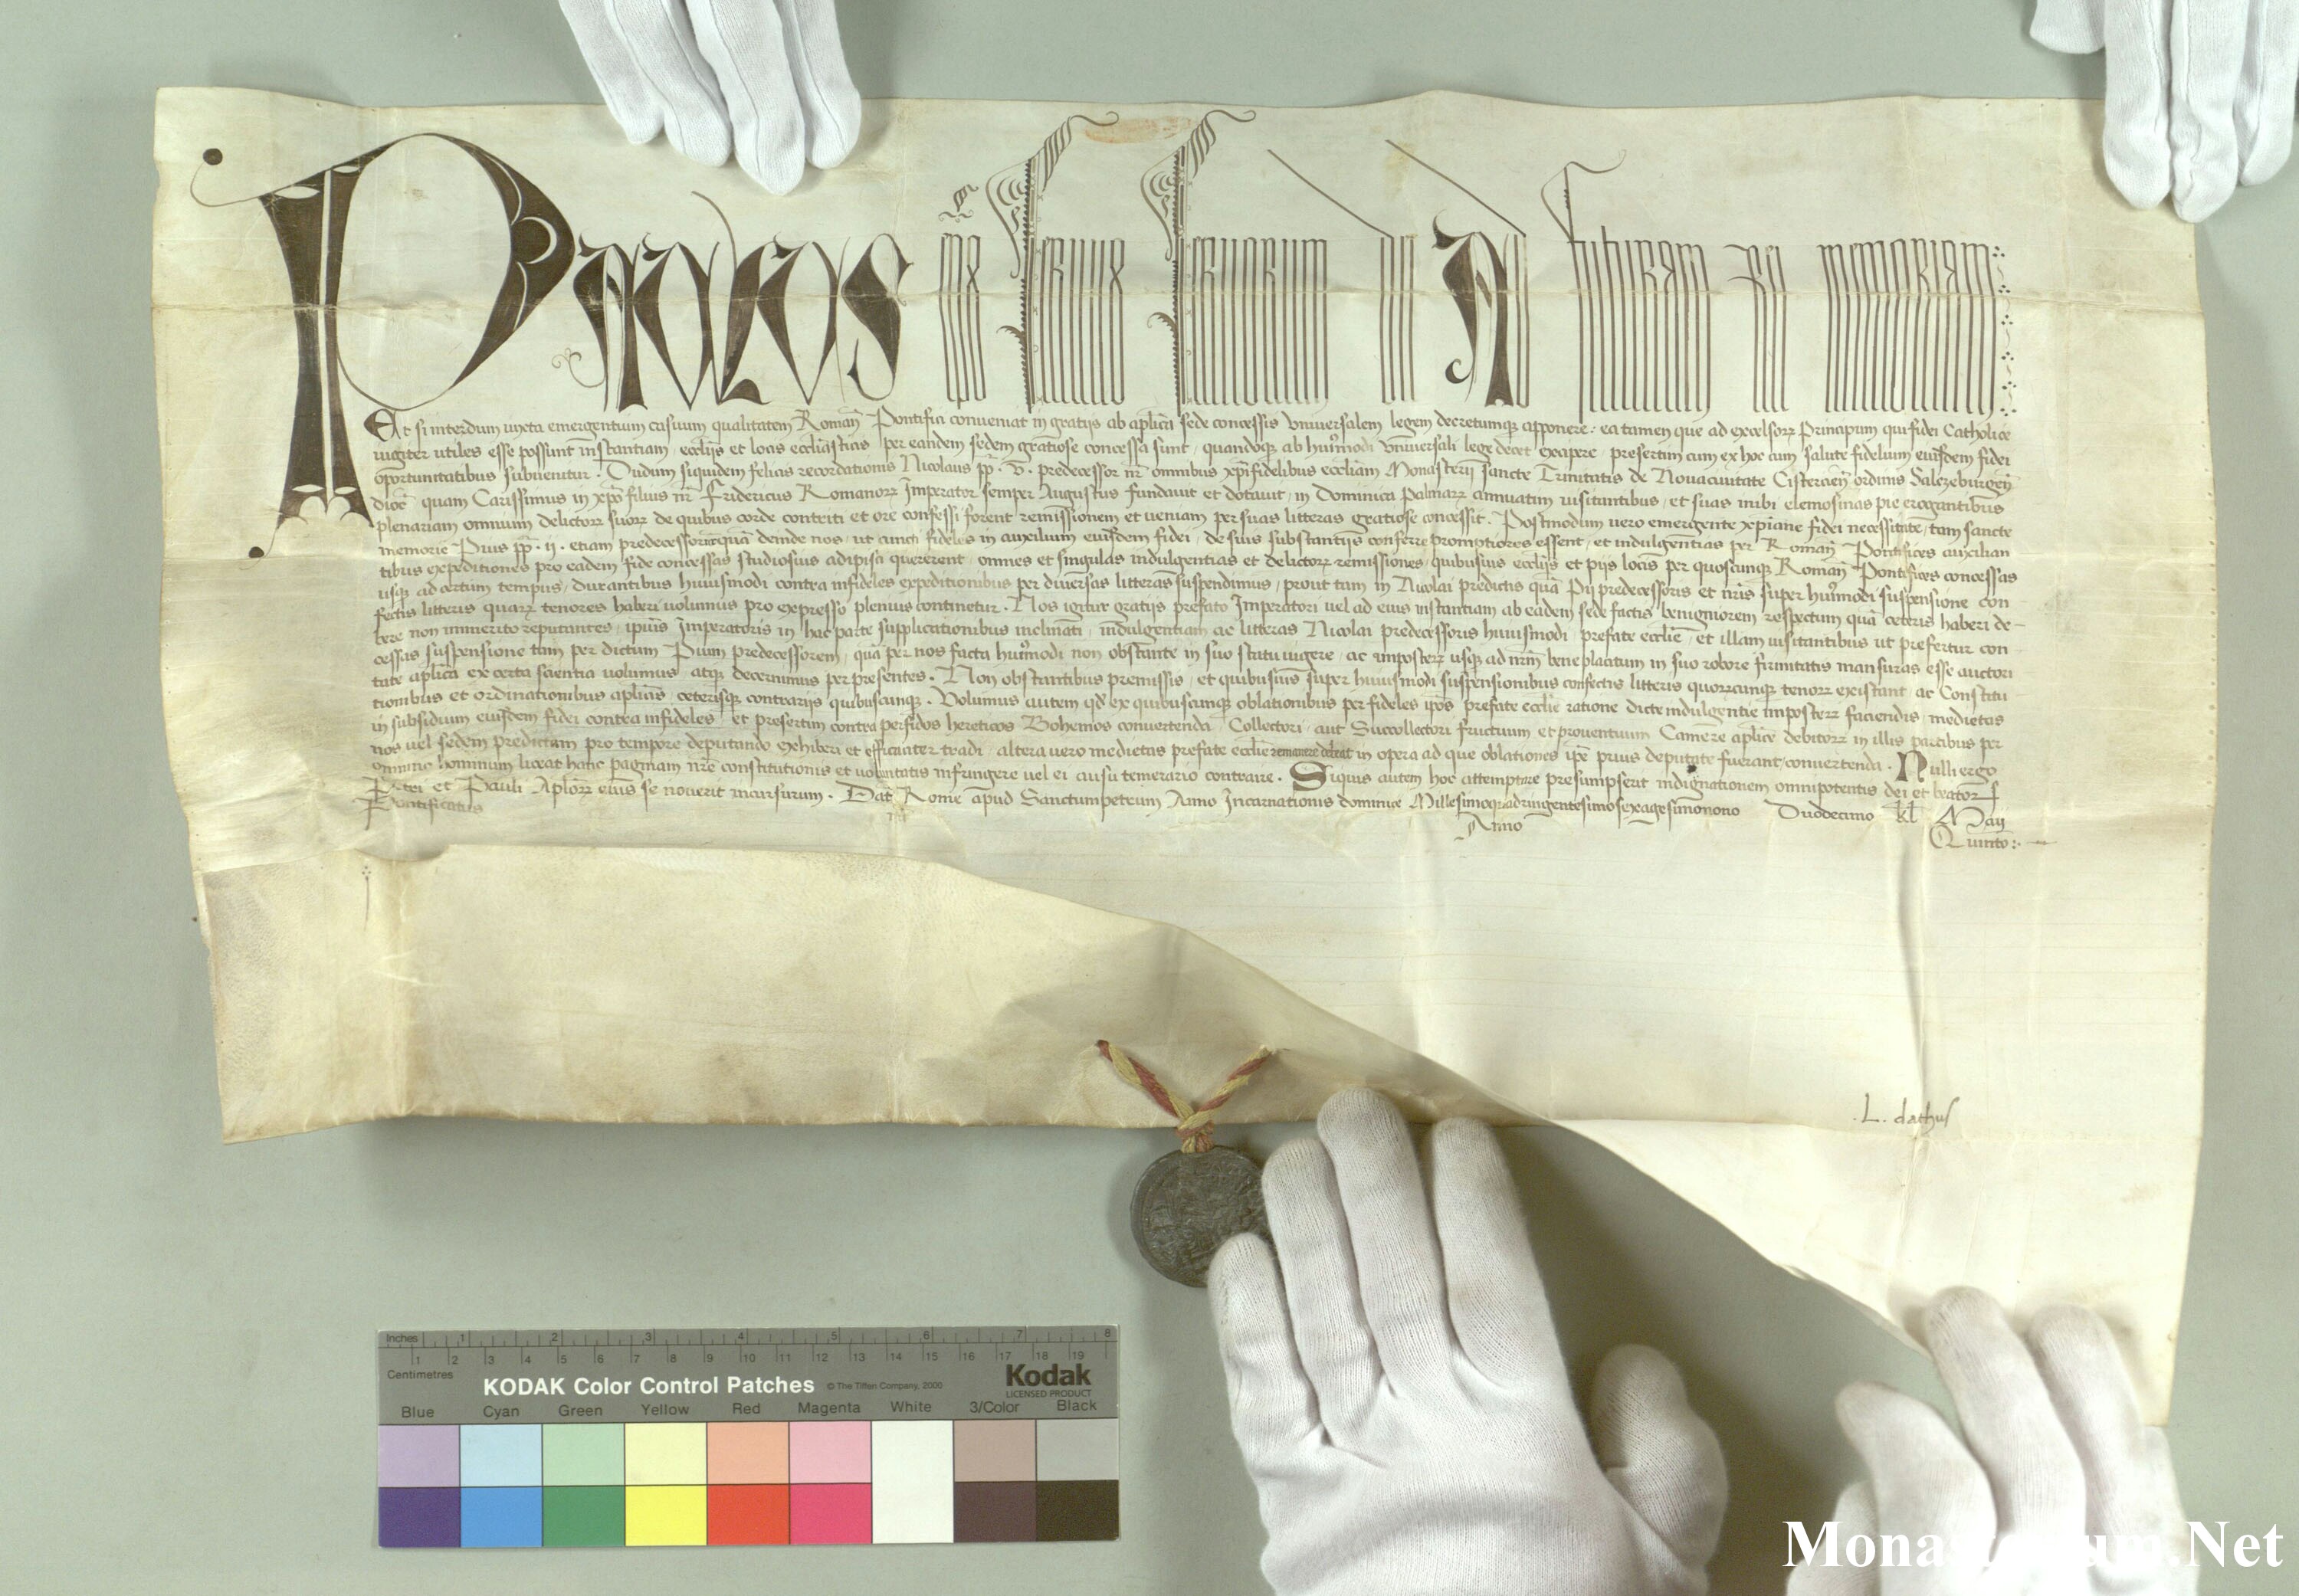 PAULUS ep̄s servus servorum dei Ad futuram rei memoriam
Et si interdum iuxta emergentium casuum qualitatem Roman̄ Pontifici conveniat in gratijs ab aplīca sede concessis Universalem legem decretumq; apponere: ea tamen que ad excelsorꝝ Principum qui fidei Catholice
iugiter utiles esse possunt īnstantiam, ecclījs et locis ecclīasticis per eandem sedem gratiose concessa sunt, quandoq; ab huiꝰmodi Universali lege decet excipere, presertim cum ex hoc cum salute fidelium eiusdem fidei
oportunitatibus subuenitur. Dudum siquidem felicis recordationis Nicolaus pp̄. v. predecessor nr̄ omnibus xp̄ifidelibus eccliam Monasterij sancte Trinitatis de Novacivitate Cistercien̄ ordinis Salczeburgen̄
dioc̄ quam Carissimus in xp̄o filius nr̄ Fridericus Romanorꝝ Imperator semper Augustus fundavit et dotavit, in Dominica Palmarꝝ annuatim visitantibus, et suas inibi elemosinas pie erogantibus
plenariam omnium delictorꝝ suorꝝ de quibus corde contriti et ore confessi forent remissionem et veniam per suas litteras gratiose concessit. Postmodum vero emergente xp̄iane fidei necessitate, tam sancte
memorie Pius pp̄. ij. etiam predecessor nr̄ quā deinde nos, ut cuncti fideles in auxilium eiusdem fidei, de suis substantijs conferre promptiores essent, et indulgentias per Roman̄ Pontifices auxilian
tibus expeditiones pro eadem fide concessas studiosius adipisci quererent, omnes et singulas indulgentias et delictorꝝ remissiones, quibusuis ecclījs et pijs locis per quoscunq; Roman̄ Pontifices concessas
usq; ad certum tempus, durantibus huiusmodi contra infideles expeditionibus per diversas litteras suspendimus, prout tam in Nicolai predictis quā Pij predecessoris et nr̄is super huiꝰmodi suspensione con
fectis litteris quarꝝ tenores haberi volumus pro expresso plenius continetur. Nos igitur gratijs prefato Imperatori vel ad eius instantiam ab eadem sede factis benigniorem respectum quā ceteris haberi de-
bere non immerito reputantes, ipius Imperatoris in hac parte supplicationibus inclinati, indulgentiam ac litteras Nicolai predecessoris huiusmodi, prefate ecclīe, et illam visitantibus ut prefertur con
cessas suspensione tam per dictum Pium predecessorem, quā per nos facta huiꝰmodi non obstante in suo statu vigere, ac imposterꝝ usq; ad nr̄m beneplacitum in suo robore firmitatis mansuras esse auctori
tate aplīca ex certa scientia volumus atq; decernimus per presentes. Non obstantibus premissis, et quibusuis super huiusmodi suspensionibus confectis litteris quorꝝcunq; tenorꝝ existant, ac Constitu
tionibus et ordinationibus aplicis, ceterisq; contrarijs quibuscunq;. Volumus autem qd̄ ex quibuscunq; oblationibus per fideles ipōs prefate ecclīe ratione dicte indulgentie imposterꝝ faciendis, medietas
in subsidium eiusdem fidei contra infideles, et presertim contra perfidos hereticos Bohemos convertenda, Collectori, aut Succollectori fructuum et proventuum Camere aplīce debitorꝝ in illis partibus per
nos vel sedem predictam pro tempore deputando exhiberi et efficaciter tradi, altera vero medietas prefate ecclīe remanere debeat in opera ad que oblationes ipē prius deputate fuerant, convertenda. Nulli ergo
omnino hominum liceat hanc paginam nr̄e constitutionis et voluntatis infringere vel ei ausu temerario contraire. Siquis autem hoc attemptare presumpserit indignationem omnipotentis dei et beatorꝝ
Petri et Pauli Aplorꝝ eius se noverit incursurum. Dat̄ Rome apud Sanctumpetrum Anno Incarnationis dominice Millesimoquadringentesimosexagesimonono Duodecimo kl̄ Maij
Pontificatus Anno Quinto:
.L. dathus
Inches 1 2 3 4 5 6 7 8
1 2 3 4 5 6 7 8 9 10 11 12 13 14 15 16 17 18 19
Centimetres
KODAK Color Control Patches © The Tiffen Company, 2000 Kodak
LICENSED PRODUCT
Blue Cyan Green Yellow Red Magenta White 3/Color Black